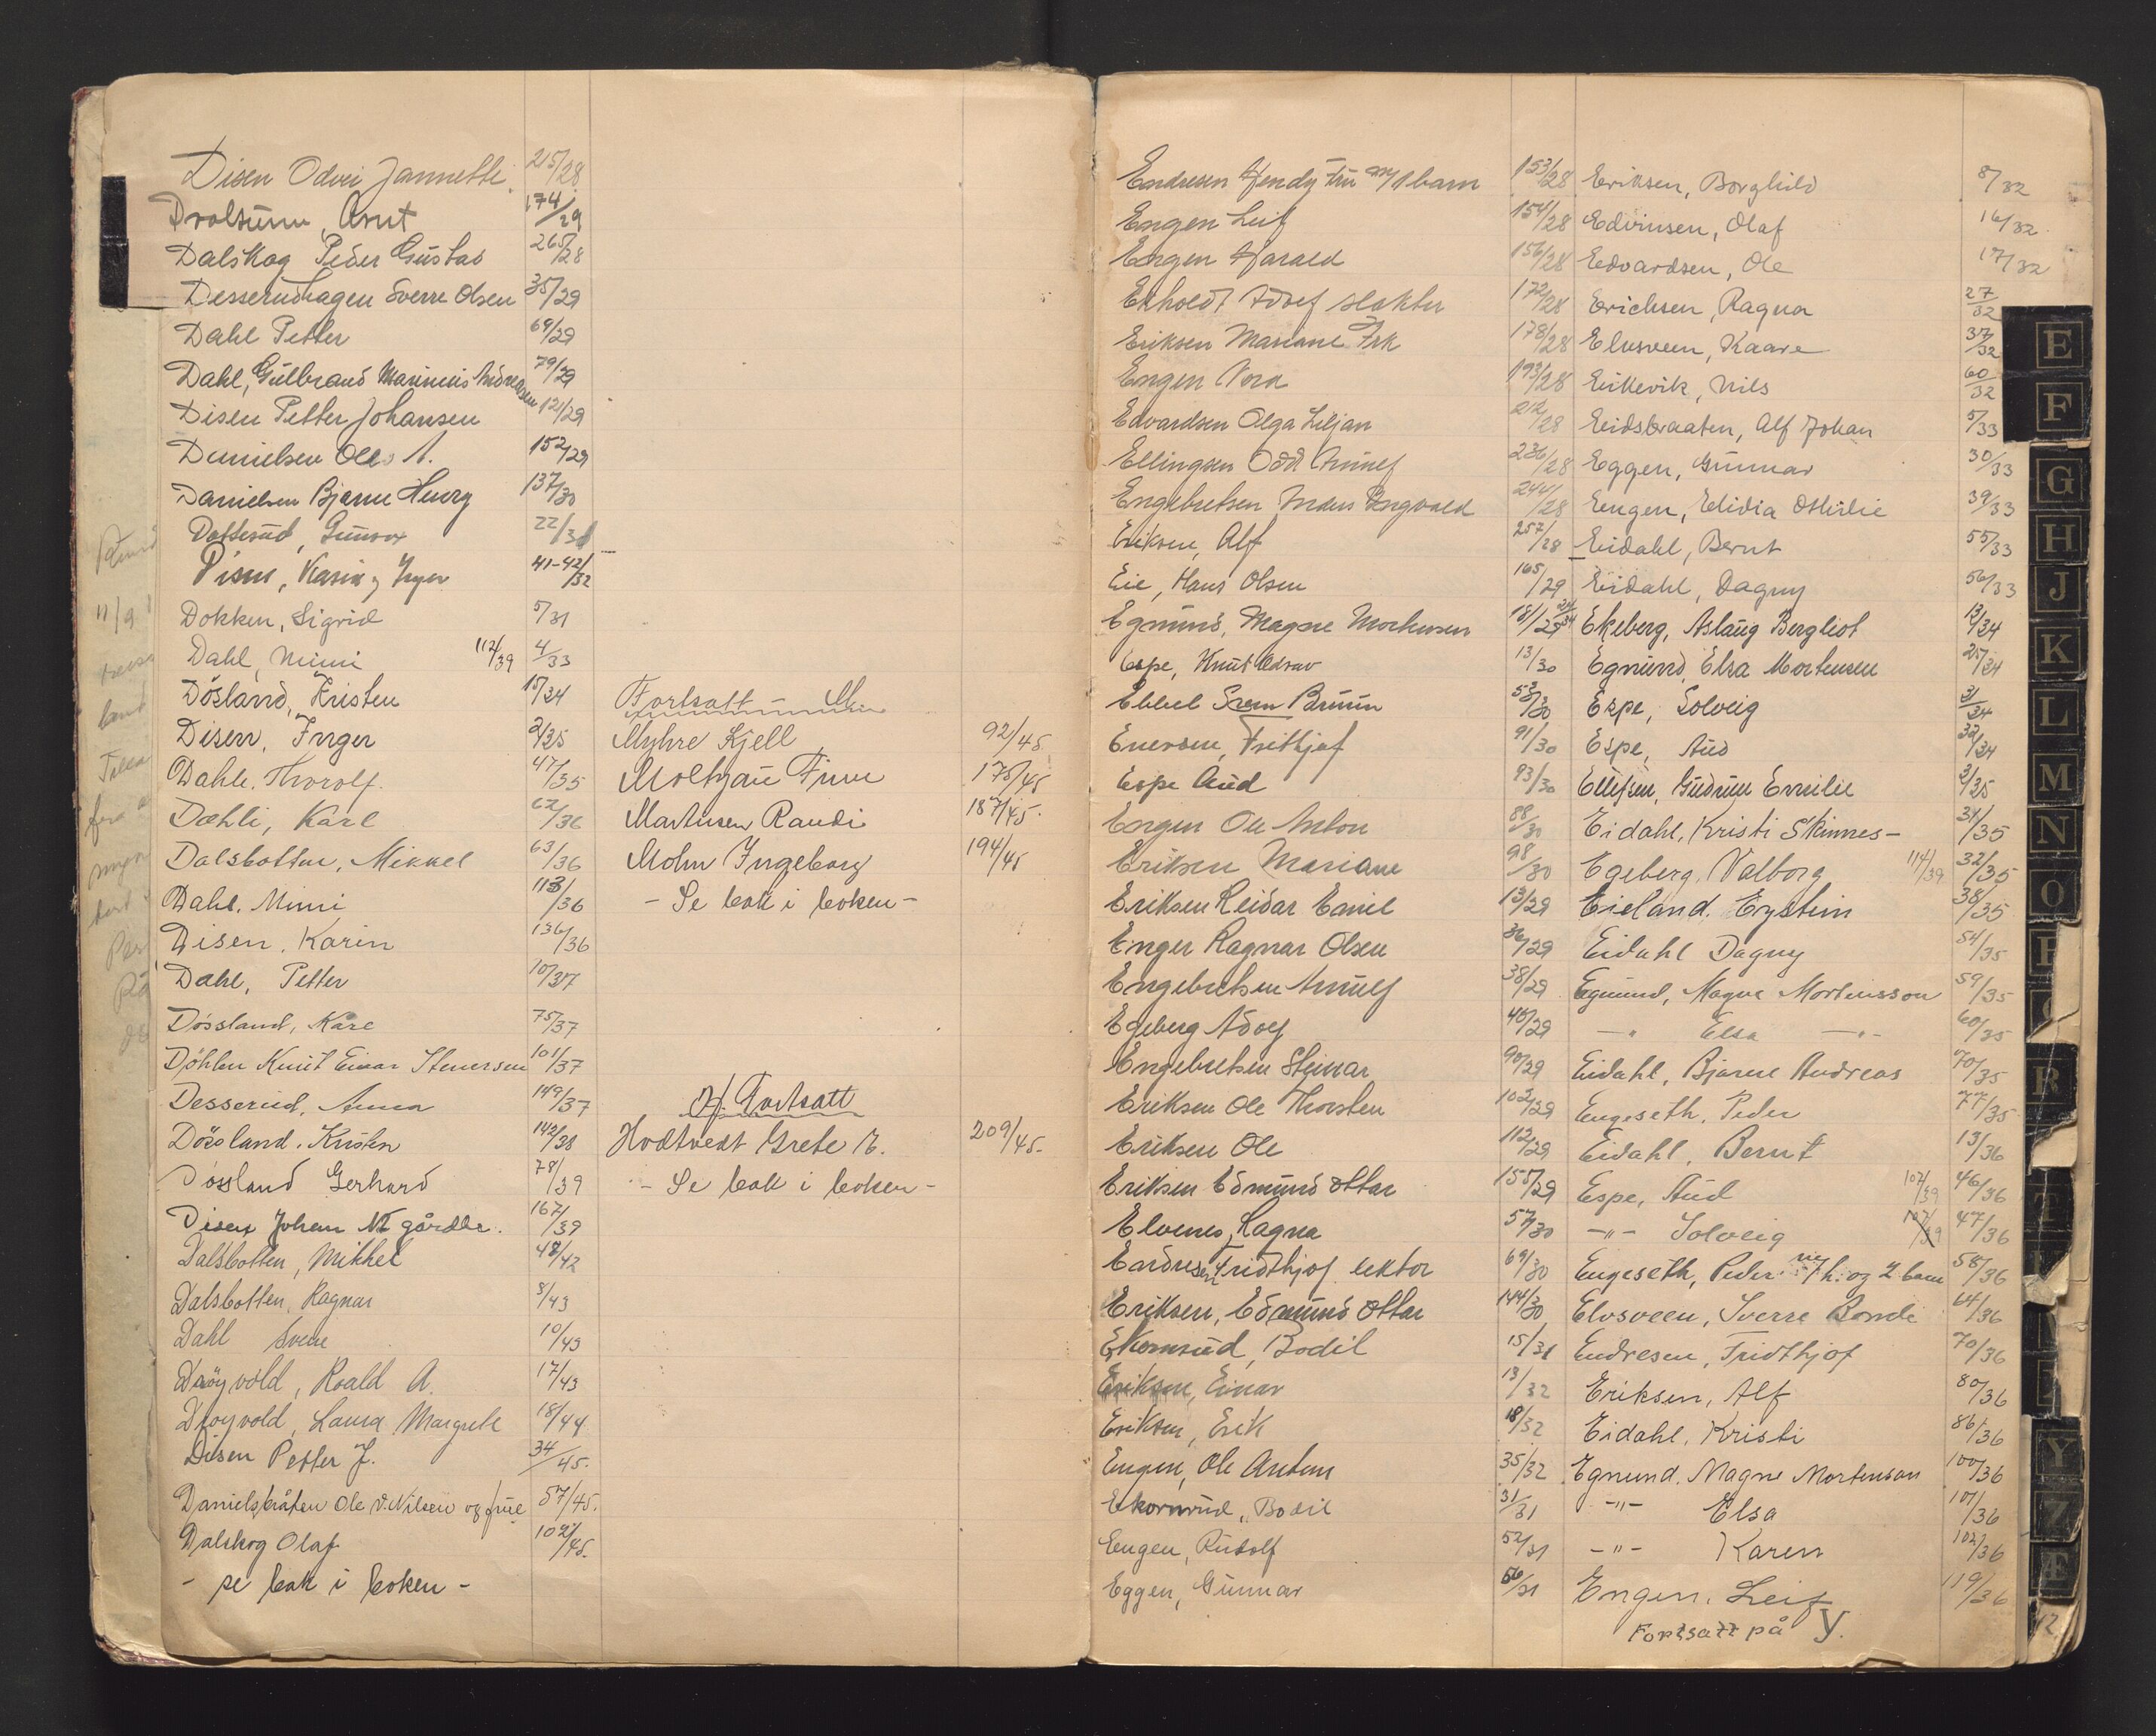 Disen Odvei Jannette 215/28
Arnt 174/29
Dalskog Peder Gustav 265/28
Desserudhagen Sverre Olsen 35/29
Dahl Petter 69/29
Dahl, Gulbrand Marinius Andreassen 79/29
Disen Petter Johansen 121/29
Danielsen Ole A. 152/29
Danielsen Bjarne Henry 137/30
Gunvor 22/31
Disen, Karin og Inger 41-42/32
Dokken, Sigrid 5/31
Dahl, Mimi 112/39 4/33
Døsland, Kristen 15/34
Disen, Inger 2/35
Dahle, Thorolf. 47/35
Dæhli, Karl 62/36
Dalsbotten, Mikkel 63/36
Dahl, Mimi 113/36
Disen, Karin 136/36
Dahl, Petter 10/37
Døssland, Kåre 75/37
Døhlen Knut Einar Stenersen 101/37
Desserud, Anna 149/37
Døssland, Kristen 142/38
Døssland Gerhard 78/39
Disen Johan M gårdbr. 167/39
Dalsbotten, Mikkel 48/42
Dalsbotten, Ragnar 8/43
Dahl Svein 10/43
Drøyvold, Roald A. 17/43
Drøyvold, Laura Margrete 18/44
Disen Petter J. 34/45.
Danielsbråten Ole V. Nilsen og frue 57/45.
Dalskog Olaf 102/45.
- se bak i boken -
Fortsatt M
Myhre Kjell 92/45
Moltzau Finn 175/45
Martinsen Randi 187/45.
Mohn Ingeborg 194/45
- Se bak i boken -
H. Fortsatt
Hvoltvedt Grete R. 209/45.
- Se bak i boken -
Endresen Jendy Fru m/1 barn 153/28
Engen Leif 154/28
Engen Harald 156/28
Ekholdt Adolf slakter 172/28
Eriksen Mariane Frk 178/28
Engen Nora 193/28
Edvardsen Olga Liljan 212/28
Ellingsen Odd Arnulf 236/28
Engebretsen Hans Ingvald 244/28
Eriksen, Alf 257/28
Eie, Hans Olsen 165/29
Egmund, Magne Mortensen 18/29 24/34
Espe, Knut Edvar 13/30
Ebbel Svern Bruun 53/30
Enersen, Frithjof 91/30
Espe Aud 93/30
Engen Ole Anton 88/30
Eriksen Mariane 98/30
Eriksen Reidar Emil 13/29
Enger Ragnar Olsen 36/29
Engebretsen Arnulf 38/29
Egeberg Adolf 40/29
Engebretsen Steinar 90/29
Eriksen Ole Thorsten 102/29
Eriksen Ole 112/29
Eriksen Edmund Ottar 155/29
Elvenes, Ragna 57/30
Endresen, Fridthjof lektor 69/30
Eriksen, Edmund Ottar 144/30
Ekornrud, Bodil 15/31
Eriksen, Einar 13/32
Eriksen, Erik 18/32
Engen, Ole Anton 35/32
Ekornrud, Bodil 31/31
Engen, Rudolf 52/31
Eggen, Gunnar 56/31
Eriksen, Borghild 8/32
Edvinsen, Olaf 16/32
Edvardsen, Ole 17/32
Erichsen, Ragna 27/32
Elvsveen, Kaare 37/32
Eikevik, Nils 60/32
Eidsbraaten, Alf Johan 5/33
Eggen, Gunnar 30/33
Engen, Elidia Otilie 39/33
Eidahl, Bernt 55/33
Eidahl, Dagny 56/33
Ekeberg, Aslaug Bergliot 13/34
Egmund, Elsa Mortensen 25/34
Espe, Solveig 31/34
Espe, Aud 32/34
Ellefsen, Gudrun Emilie 3/35
Eidahl, Kristi Skinnes- 31/35
Egeberg, Valborg 114/39 32/35
Eieland, Eystein 38/35
Eidahl Dagny 54/35
Egmund, Magne Mortensson 59/35
-"- Elsa -"- 60/35
Eidahl, Bjarne Andreas 70/35
Engeseth, Peder 77/35
Eidahl, Bernt 13/36
Espe, Aud 102/39 46/36
-"- Solveig 107/39 47/36
Engeseth, Peder m/h. og 2 barn 58/36
Elvsveen, Sverre Bonde 64/36
Endresen, Fridthjof 70/36
Eriksen, Alf 80/36
Eidahl, Kristi 86/36
Egmund, Magne Mortenson 100/36
-"- Elsa 101/36
-"- Karen 102/36
Engen, Leif 119/36
Fortsatt på Y.
E
F
G
H
J
K
L
M
N
O
P
R
T
Y
Z
Æ